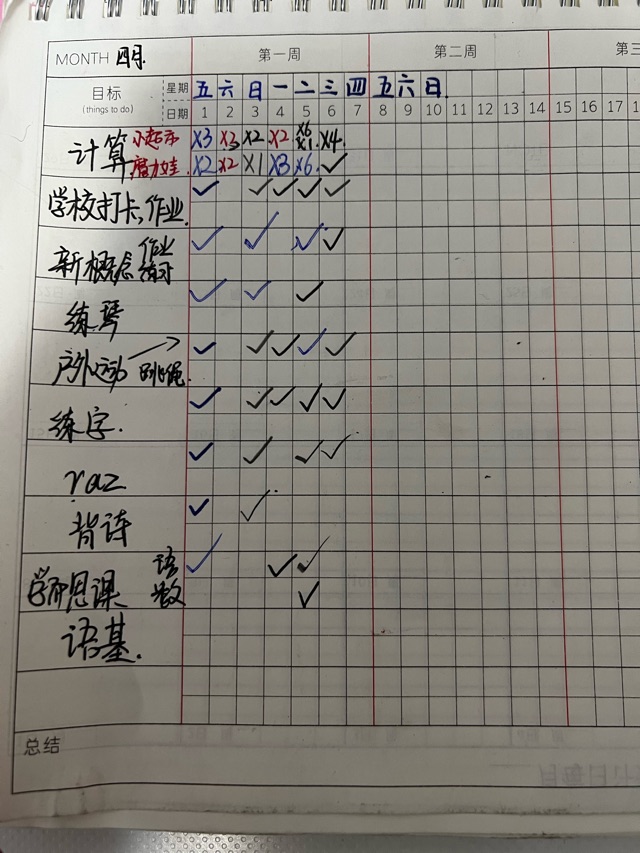 MONTH 四月 第一周 第二周 第三
目标 星期 五 六 日 一 二 三 四 五 六 日
(things to do) 日期 1 2 3 4 5 6 7 8 9 10 11 12 13 14 15 16 17
计算 小超市 X3 X3 X2 X2 X6 X1 X4
魔力娃 X2 X2 X1 X3 X6 ✓
学校打卡,作业 ✓ ✓ ✓ ✓ ✓
新概念 作业 ✓ ✓ ✓ ✓
练琴 ✓ ✓ ✓
户外运动 → 跳绳 ✓ ✓ ✓ ✓ ✓
练字. ✓ ✓ ✓ ✓ ✓
raz ✓ ✓ ✓ ✓
背诗 ✓ ✓
学而思课 语 ✓ ✓ ✓
数 ✓
语基.
总结